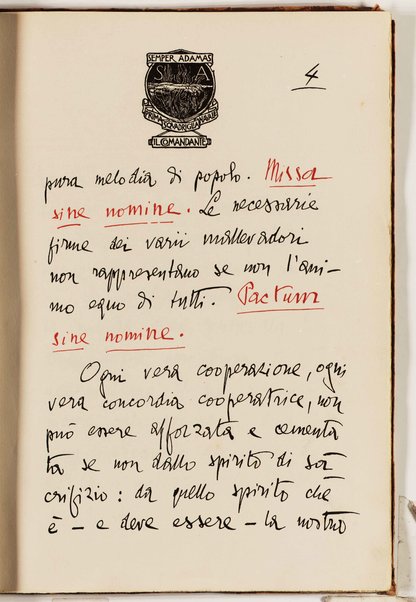 SEMPER ADAMAS
S A
PRIMA SQUADRIGLIA NAVALE
IL COMANDANTE
4
pura melodia di popolo. Missa
sine nomine. Le necessarie
firme dei varii mallevadori
non rappresentano se non l'ani-
mo equo di tutti. Pactum
sine nomine.
Ogni vera cooperazione, ogni
vera concordia cooperatrice, non
può essere afforzata e cementa
ta se non dallo spirito di sa
crifizio: da quello spirito che
è – e deve essere – la nostra